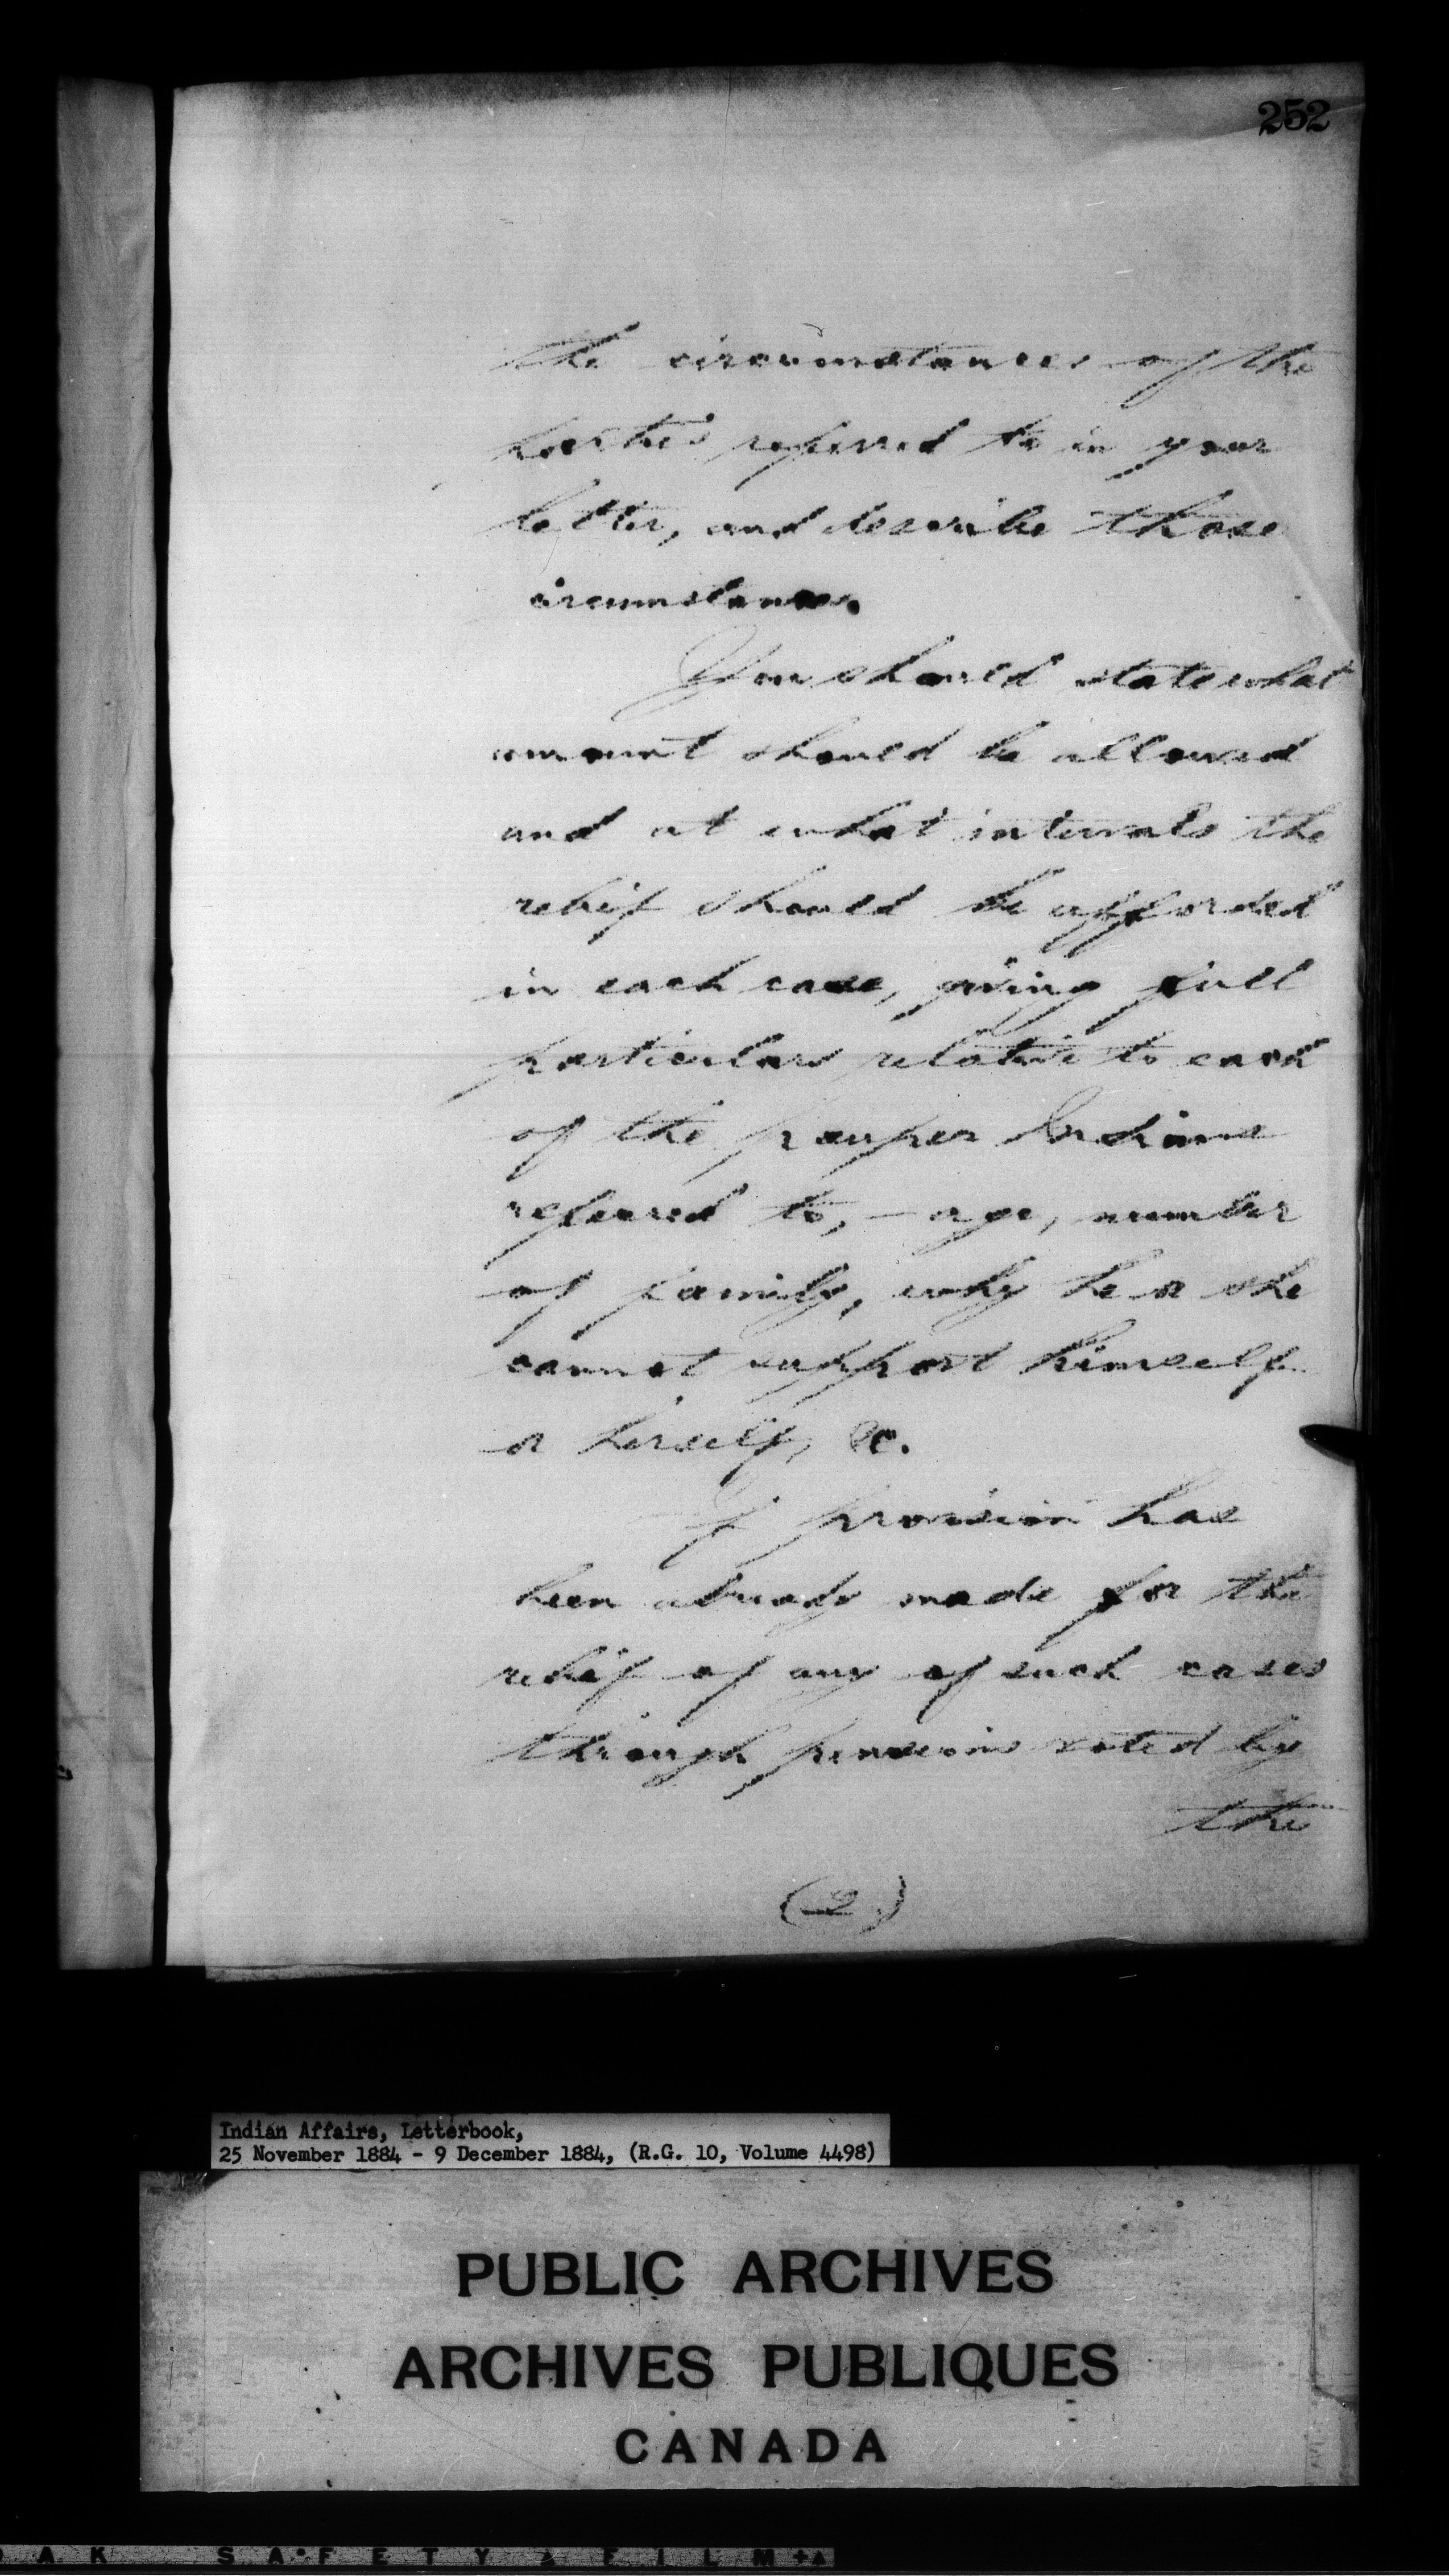 252
the circumstances of the
parties referred to in your
letter, and describe those
circumstances.
You should state what
amount should be allowed
and at what intervals the
relief should be afforded
in each case, giving full
particulars relative to each
of the pauper Indians
referred to, — age, number
of family, why he or she
cannot support himself
or herself, &c.
If provision has
been already made for the
relief of any of such cases
through pensions voted by
the
(2)
Indian Affairs, Letterbook,
25 November 1884 - 9 December 1884, (R.G. 10, Volume 4498)
PUBLIC ARCHIVES
ARCHIVES PUBLIQUES
CANADA
A K SAFETY FILM